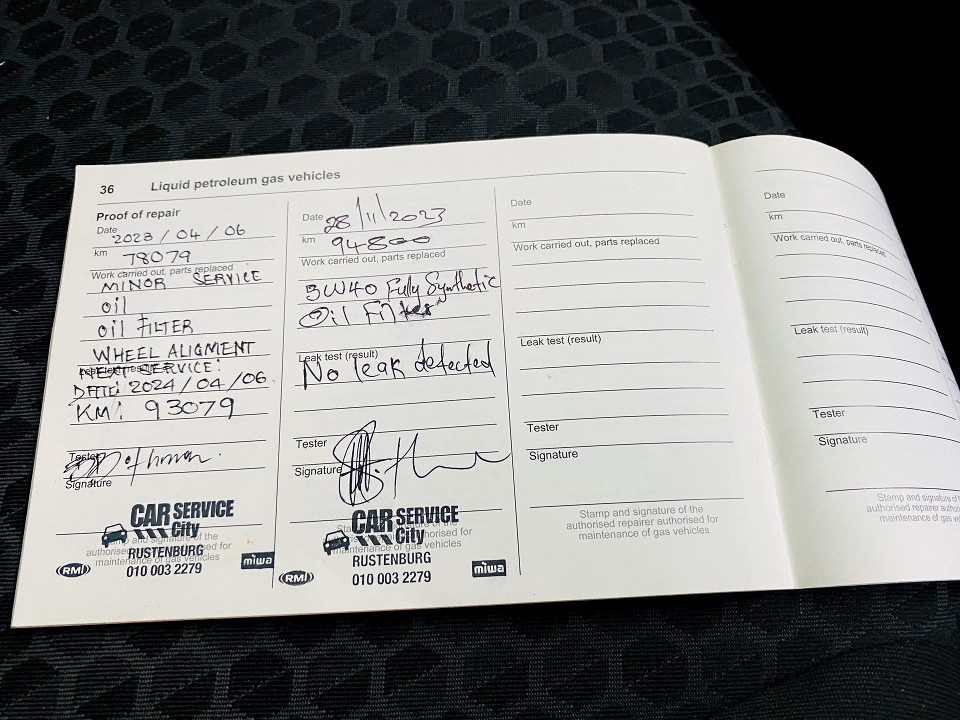 36 Liquid petroleum gas vehicles
Proof of repair
Date 2023/04/06
km 78079
Work carried out, parts replaced
MINOR SERVICE
oil
oil FILTER
WHEEL ALIGMENT
Leak test (result)
NEXT SERVICE:
DATE: 2024/04/06.
KM: 93079
Tester
Signature
Stamp and signature of the
authorised repairer authorised for
maintenance of gas vehicles
CAR SERVICE
City
RUSTENBURG
010 003 2279
RMI
miwa
Date 28/11/2023
km 94800
Work carried out, parts replaced
5W40 Fully Synthetic
Oil Filter
Leak test (result)
No leak detected
Tester
Signature
Stamp and signature of the
authorised repairer authorised for
maintenance of gas vehicles
CAR SERVICE
City
RUSTENBURG
010 003 2279
RMI
miwa
Date
km
Work carried out, parts replaced
Leak test (result)
Tester
Signature
Stamp and signature of the
authorised repairer authorised for
maintenance of gas vehicles
Date
km
Work carried out, parts replaced
Leak test (result)
Tester
Signature
Stamp and signature of
authorised repairer
maintenance of gas